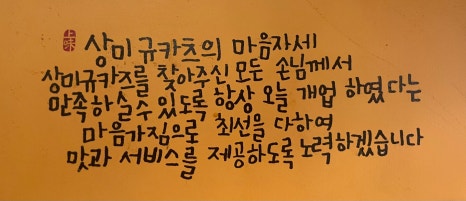 上味 상미 규카츠의 마음자세
상미규카츠를 찾아주신 모든 손님께서
만족하실수있도록 항상 오늘 개업 하였다는
마음가짐으로 최선을 다하여
맛과 서비스를 제공하도록 노력하겠습니다